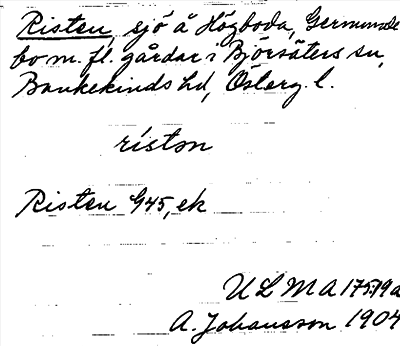 Risten, sjö å Högboda, Germunde
bo m. fl. gårdar i Björsäters sn,
Bankekinds hd, Österg. l.
ristən
Risten G45, ek
ULMA 175:19a
A. Johansson 1904